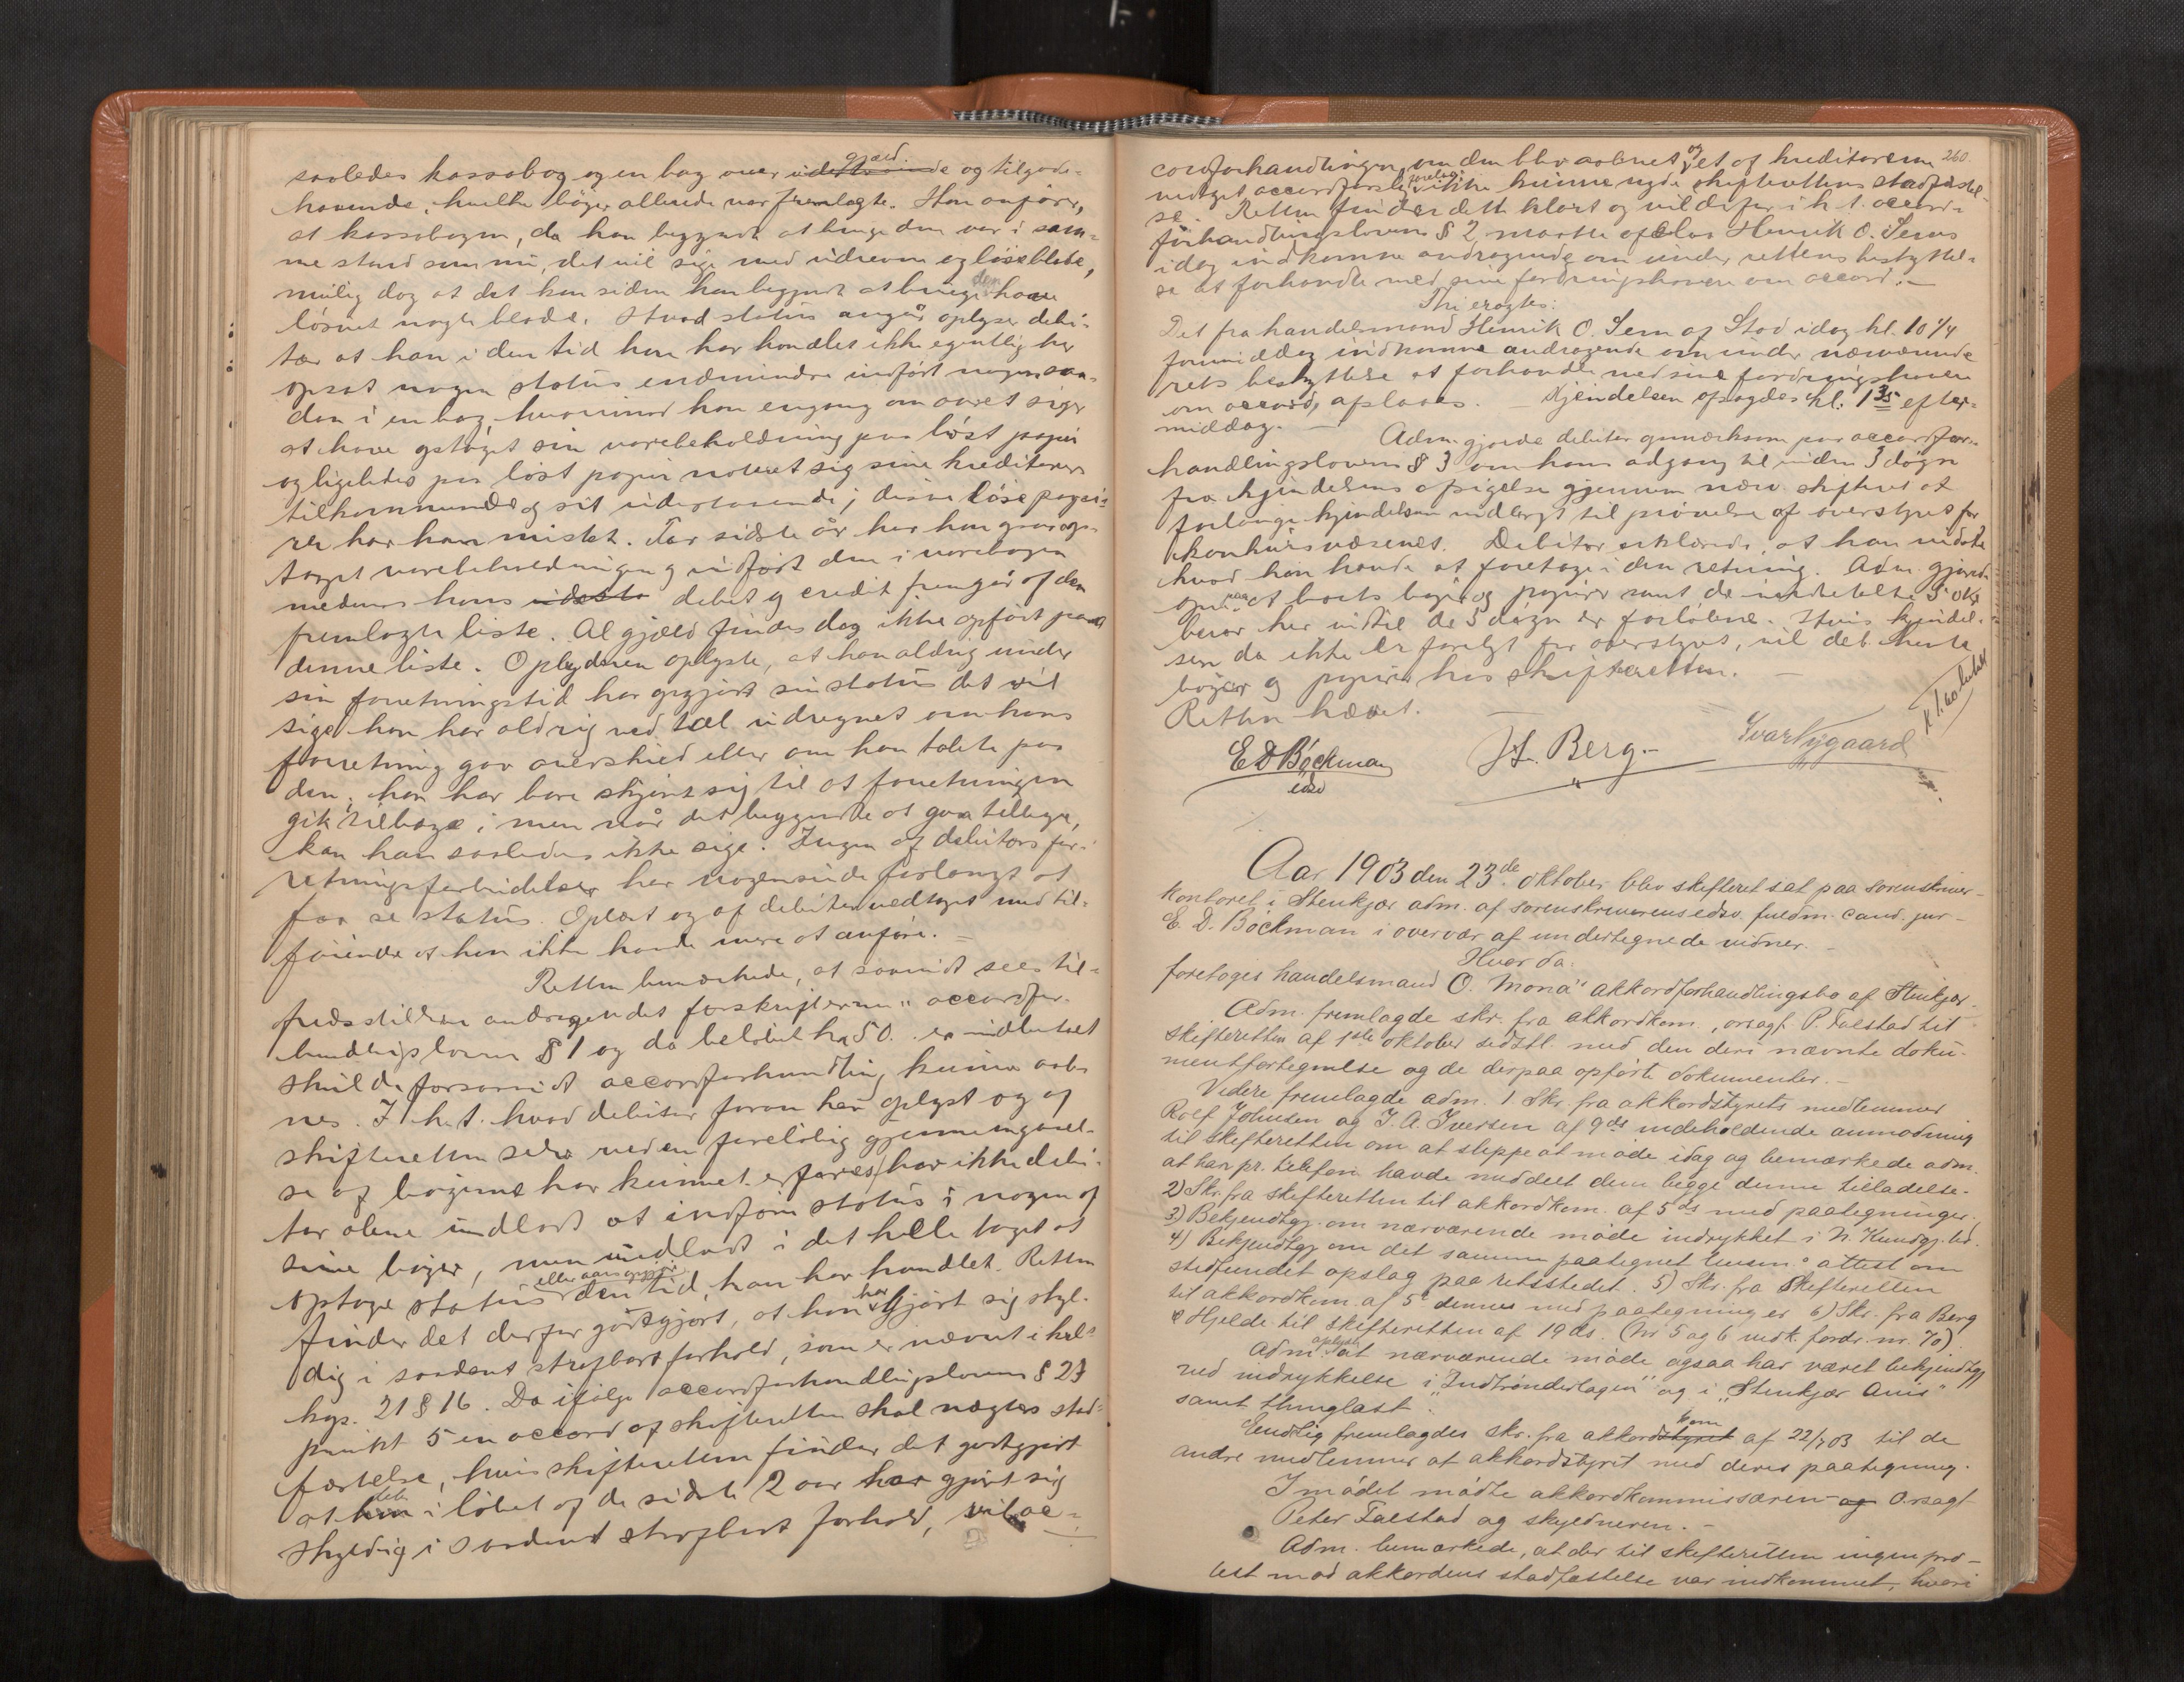 saaledes kassabog og en bog over udestaaende gjæld. og tilgode-
havende, hvilke bøger allerede var fremlagte. Han anfører,
at kassabogen, da han begyndte at bruge den var i sam-
me stand som nu, det vil sige med udrevne og løse blade,
mulig dog at det kan siden han begyndte at bruge den have
løsnet nogle blade. Hvad status angår, oplyser debi-
tor at han i den tid han har handlet ikke egentlig har
opsat nogen status endmindre indført nogen saa-
dan i en bog, hvorimod han engang om aaret siger
at have optaget sin varebeholdning paa løst papir
og ligeledes paa løst papir noteret sig sine kreditorers
tilkommende og sit udestaaende; disse løse papi-
rer har han mistet. For sidste år har han
taget varebeholdningen og indført den i varebogen
medens hans udesta debet og credit fremgår af den
fremlagte liste. Al gjæld findes dog ikke opført paa
denne liste. Opbyderen oplyste, at han aldrig under
sin forretningstid har opgjort sin status det vil
sige han har aldrig ved tal udregnet om hans
forretning gav overskud eller om han tabte paa
den; han har bare skjønt sig til at forretningen
gik tilbage; men når det begyndte at gaa tilbage,
kan han saaledes ikke sige. Ingen af debitors for-
retningsforbindelser har nogensinde forlangt at
faa se status. Oplæst og af debitor vedtaget med til-
føiende at han ikke havde mere at anføre. –
Retten bemærkede, at saavidt sees til-
fredsstiller andragendet forskrifterne i accordfor-
handlingslovens § 1 og da beløbet kr 50. er indbetalt
skulde forsaavidt accordforhandling kunne aab-
nes. I h.t. hvad debitor foran har oplyst og af
skifteretten selv ved en foreløbig gjennemgaael-
se af bøgerne har kunnet erfares, har ikke debi-
tor alene undladt at indføre status i nogen af
sine bøger, men undladt i det hele taget at
optage status eller aarsopgjør den tid, han har handlet. Retten
finder det derfor godtgjort, at han har gjort sig skyl-
dig i saadant strafbart forhold, som er nævnt i krl's
kap. 21 § 16. Da ifølge accordforhandlingslovens § 27
punkt 5 en accord af skifteretten skal nægtes stad-
fæstelse, hvis skifteretten finder det godtgjort
at han deb. i løbet af de sidste 2 aar har gjort sig
skyldig i saadant strafbart forhold, vil ac-
260.
cordforhandlingen, om den blev aabnet og et af kreditorerne
vedtaget accordforslag forelagt, ikke kunne nyde skifterettens stadfæstel-
se. Retten finder dette klart og vil derfor i h.t. accord-
forhandlingslovens § 2 maatte afslaa Henrik O. Sems
idag indkomne andragende om under rettens beskyttel-
se at forhandle med sine fordringshavere om accord. –
Thi eragtes:
Det fra handelsmand Henrik O. Sem af Stod idag kl. 10 1/4
formiddag indkomne andragende om under nærværende
rets beskyttelse at forhandle med sine fordringshavere
om accord, afslaaes. – Kjendelsen opsagdes kl. 1 35 efter-
middag. –
Adm. gjorde debitor opmærksom paa accordfor-
handlingslovens § 3 om hans adgang til inden 3 døgn
fra kjendelsens afsigelse gjennem nærv. skifteret at
forlange kjendelsen indbragt til prøvelse af overstyret for
konkursvæsenet. Debitor erklærede, at han vidste
hvad han havde at foretage i den retning. Adm. gjorde
opm. paa at boets bøger og papirer samt de indbetalte 50 kr
beror her indtil de 3 døgn er forløbne. Hvis kjendel-
sen da ikke er forelagt for overstyret, vil deb. hente
bøger og papirer hos skifteretten. –
Retten hævet.
E D Bøckman
edsv
H. Berg.-
Ivar Nygaard
Aar 1903 den 23de oktober blev skifteret sat paa sorenskriver-
kontoret i Stenkjær adm. af sorenskriverens edsv. fuldm. cand. jur –
E. D. Böckman i overvær af undertegnede vidner. –
Hvor da:
foretoges handelsmand O. Mona's akkordforhandlingsbo af Stenkjær –
Adm. fremlagde skr. fra akkordkom., orsagf. P. Falstad til
skifteretten af 1ste oktober sidstl. med den deri nævnte doku-
mentfortegnelse og de derpaa opførte dokumenter. –
Videre fremlagde adm. 1. Skr. fra akkordstyrets medlemmer
Rolf Johnsen og J. A. Iversen af 9ds indeholdende anmodning
til skifteretten om at slippe at møde idag og bemærkede adm.
at han pr. telefon havde meddelt dem begge denne tilladelse.
2) Skr. fra skifteretten til akkordkom. af 5 ds med paategninger.
3) Bekjendtgj. om nærværende møde indrykket i N. Kundgj. tid.
4) Bekjendtgj. om det samme paategnet lensm. attest om
stedfundet opslag paa retsstedet. 5) Skr. fra Skifteretten
til akkordkom. af 5te dennes med paategninger 6) Skr. fra Berg
& Hjelde til skifteretten af 19 ds. (Nr 5 og 6 vedk. fordr. nr. 70).
Adm. oplyste at nærværende møde ogsaa har været bekjendtgj
ved indrykkelse i „Indtrønderlagen“ og i „Stenkjær Avis“
samt thinglæst.
Endlig fremlagdes skr. fra akkordstyret kom af 22/7 03 til de
andre medlemmer af akkordstyret med deres paategning.
I mødet mødte akkordkommissæren og O.rsagf
Peter Falstad og skyldneren. –
Adm. bemærkede, at der til skifteretten ingen pro-
test mod akkordens stadfæstelse var indkommet, hvori